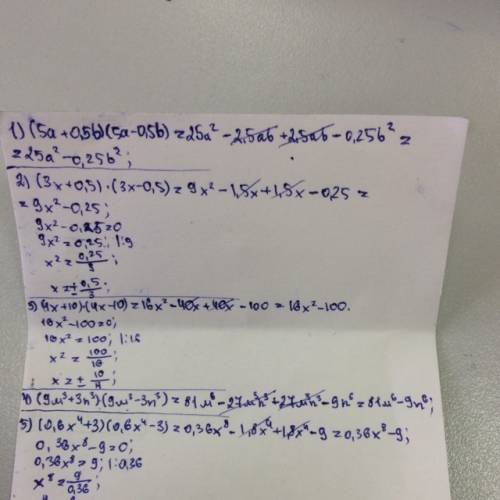 1) (5a + 0,5b)(5a - 0,5b) = 25a² - 2,5ab + 2,5ab - 0,25b² =
= 25a² - 0,25b²;
2) (3x + 0,5) · (3x - 0,5) = 9x² - 1,5x + 1,5x - 0,25 =
= 9x² - 0,25;
9x² - 0,25 = 0
9x² = 0,25; |:9
x² = 0,25/9;
x = ± 0,5/3;
3) (4x + 10)·(4x - 10) = 16x² - 40x + 40x - 100 = 16x² - 100.
16x² - 100 = 0;
16x² = 100; |:16
x² = 100/16;
x = ± 10/4;
4) (9m³ + 3n³)·(9m³ - 3n³) = 81m⁶ - 27m³n³ + 27m³n³ - 9n⁶ = 81m⁶ - 9n⁶;
5) (0,6x⁴ + 3)(0,6x⁴ - 3) = 0,36x⁸ - 1,8x⁴ + 1,8x⁴ - 9 = 0,36x⁸ - 9;
0,36x⁸ - 9 = 0;
0,36x⁸ = 9; |:0,36
x⁸ = 9/0,36;